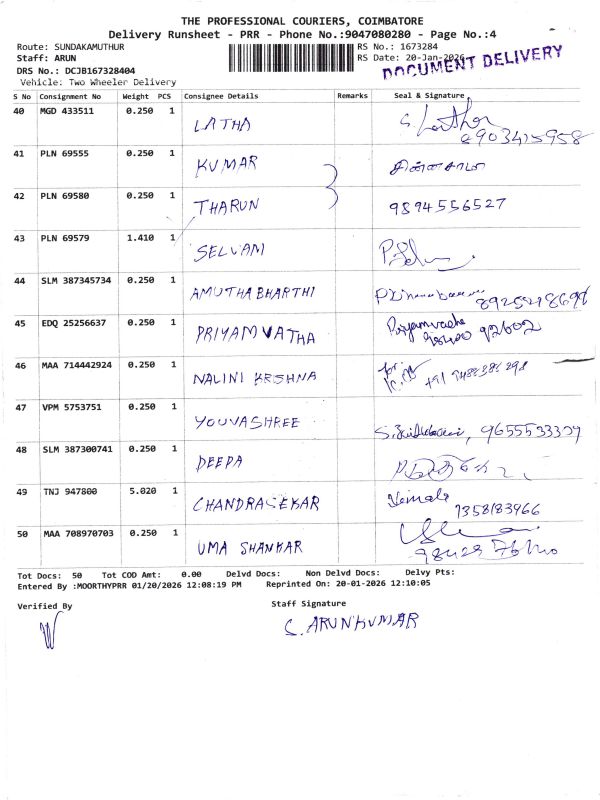 THE PROFESSIONAL COURIERS, COIMBATORE
Delivery Runsheet - PRR - Phone No.:9047080280 - Page No.:4
Route: SUNDAKAMUTHUR RS No.: 1673284
Staff: ARUN RS Date: 20-Jan-2026
DOCUMENT DELIVERY
DRS No.: DCJB167328404
Vehicle: Two Wheeler Delivery
S No Consignment No Weight PCS Consignee Details Remarks Seal & Signature
40 MGD 433511 0.250 1 LATHA S. Latha
8903415958
41 PLN 69555 0.250 1 KUMAR சின்னசாமி
42 PLN 69580 0.250 1 THARUN 9894556527
43 PLN 69579 1.410 1 SELVAM
44 SLM 387345734 0.250 1 AMUTHA BHARTHI
45 EDQ 25256637 0.250 1 PRIYAMVATHA Priyamvatha
46 MAA 714442924 0.250 1 NALINI KRISHNA
47 VPM 5753751 0.250 1 YOUVASHREE
48 SLM 387300741 0.250 1 DEEPA
49 TNJ 947800 5.020 1 CHANDRASEKAR Vemala
7358183966
50 MAA 708970703 0.250 1 UMA SHANKAR
Tot Docs: 50 Tot COD Amt: 0.00 Delvd Docs: Non Delvd Docs: Delvy Pts:
Entered By :MOORTHYPRR 01/20/2026 12:08:19 PM Reprinted On: 20-01-2026 12:10:05
Verified By Staff Signature
C. ARUNKUMAR